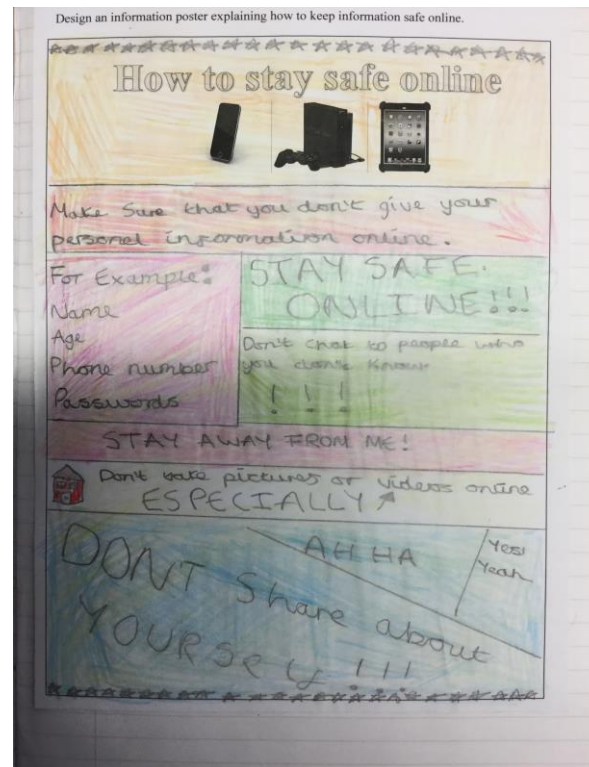 Design an information poster explaining how to keep information safe online.
How to stay safe online
Make Sure that you don't give your
personal information online.
For Example:
Name
Age
Phone number
Passwords
STAY SAFE
ONLINE!!!
Don't chat to people who
you don't know
! ! !
STAY AWAY FROM ME!
Don't take pictures or videos online
ESPECIALLY
AH HA
Yes!
Yeah
DON'T Share about
YOURSELF !!!